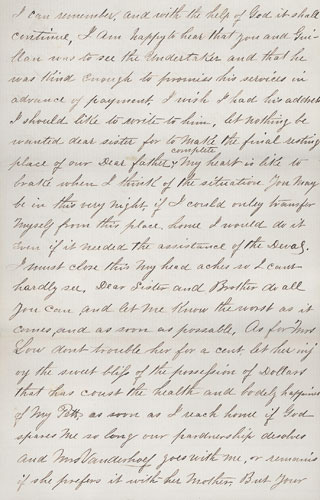 I can remember, and with the help of God it shall
continue, I am happy to hear that you and
was to see the Undertaker and that he
was kind enough to promise his services in
advance of payment. I wish I had his address
I should like to write to him, let nothing be
wanted dear sister for to make the final resting
complete
place of our Dear father, My heart is like to
brake when I think of the situation you may
be in this very night, if I could onley transfer
Myself from this place home I would do it
Even if it needed the assistance of the
I must close this My head aches so I cant
hardly see, Dear Sister and Brother do all
you can and let me know the worst as it
comes, and as soon as possable, As for Mrs
Low dont trouble her for a cent, let her inj
oy the sweet bliss of the possession of Dollars
that has coust the health and bodely happiness
of My as soon as I reach home if God
spares me so long our pardnership desolves
and Mrs Vanderhoef goes with me, or remains
if she prefers it with her Mother, But Your